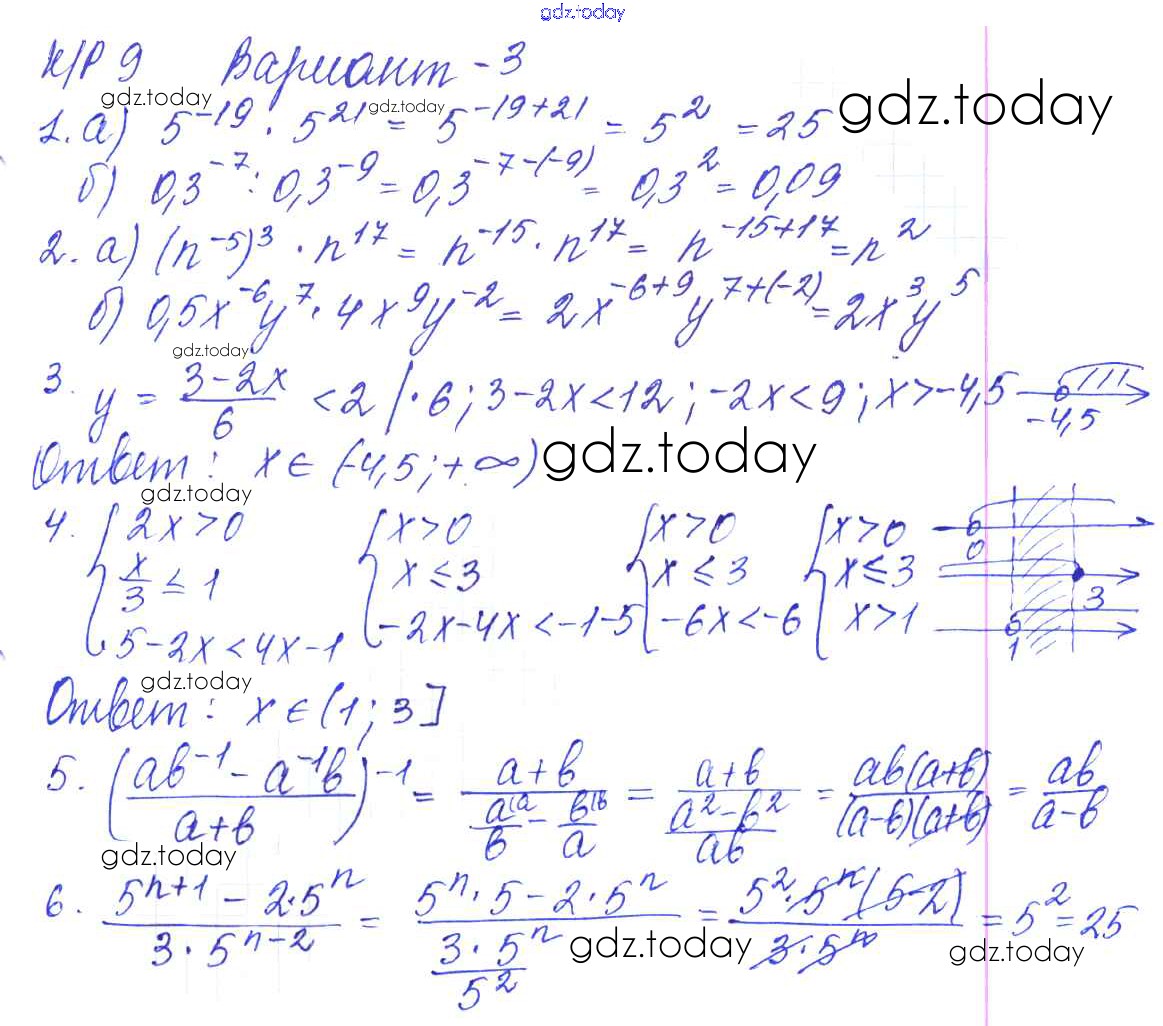 gdz.today
К/Р 9 Вариант - 3
gdz.today gdz.today gdz.today
1. а) 5^{-19} · 5^{21} = 5^{-19+21} = 5^2 = 25
б) 0,3^{-7} : 0,3^{-9} = 0,3^{-7-(-9)} = 0,3^2 = 0,09
2. а) (n^{-5})^3 · n^{17} = n^{-15} · n^{17} = n^{-15+17} = n^2
б) 0,5x^{-6}y^7 · 4x^9y^{-2} = 2x^{-6+9}y^{7+(-2)} = 2x^3y^5
gdz.today
3. y = \frac{3-2x}{6} < 2 | · 6 ; 3-2x<12 ; -2x<9 ; x>-4,5 -4,5
Ответ : x ∈ (-4,5 ; +∞) gdz.today
gdz.today
4. { 2x>0 { x>0 { x>0 { x>0 0
\frac{x}{3} ≤ 1 x ≤ 3 x ≤ 3 x ≤ 3 3
5-2x<4x-1 -2x-4x<-1-5 -6x<-6 x>1 1
gdz.today
Ответ : x ∈ (1 ; 3]
5. (\frac{ab^{-1} - a^{-1}b}{a+b})^{-1} = \frac{a+b}{\frac{a^{(a}}{b} - \frac{b^{(b}}{a}} = \frac{a+b}{\frac{a^2-b^2}{ab}} = \frac{ab(a+b)}{(a-b)(a+b)} = \frac{ab}{a-b}
gdz.today
6. \frac{5^{n+1} - 2·5^n}{3 · 5^{n-2}} = \frac{5^n · 5 - 2 · 5^n}{\frac{3 · 5^n}{5^2}} = \frac{5^2 · 5^n (5-2)}{3 · 5^n} = 5^2 = 25
gdz.today gdz.today